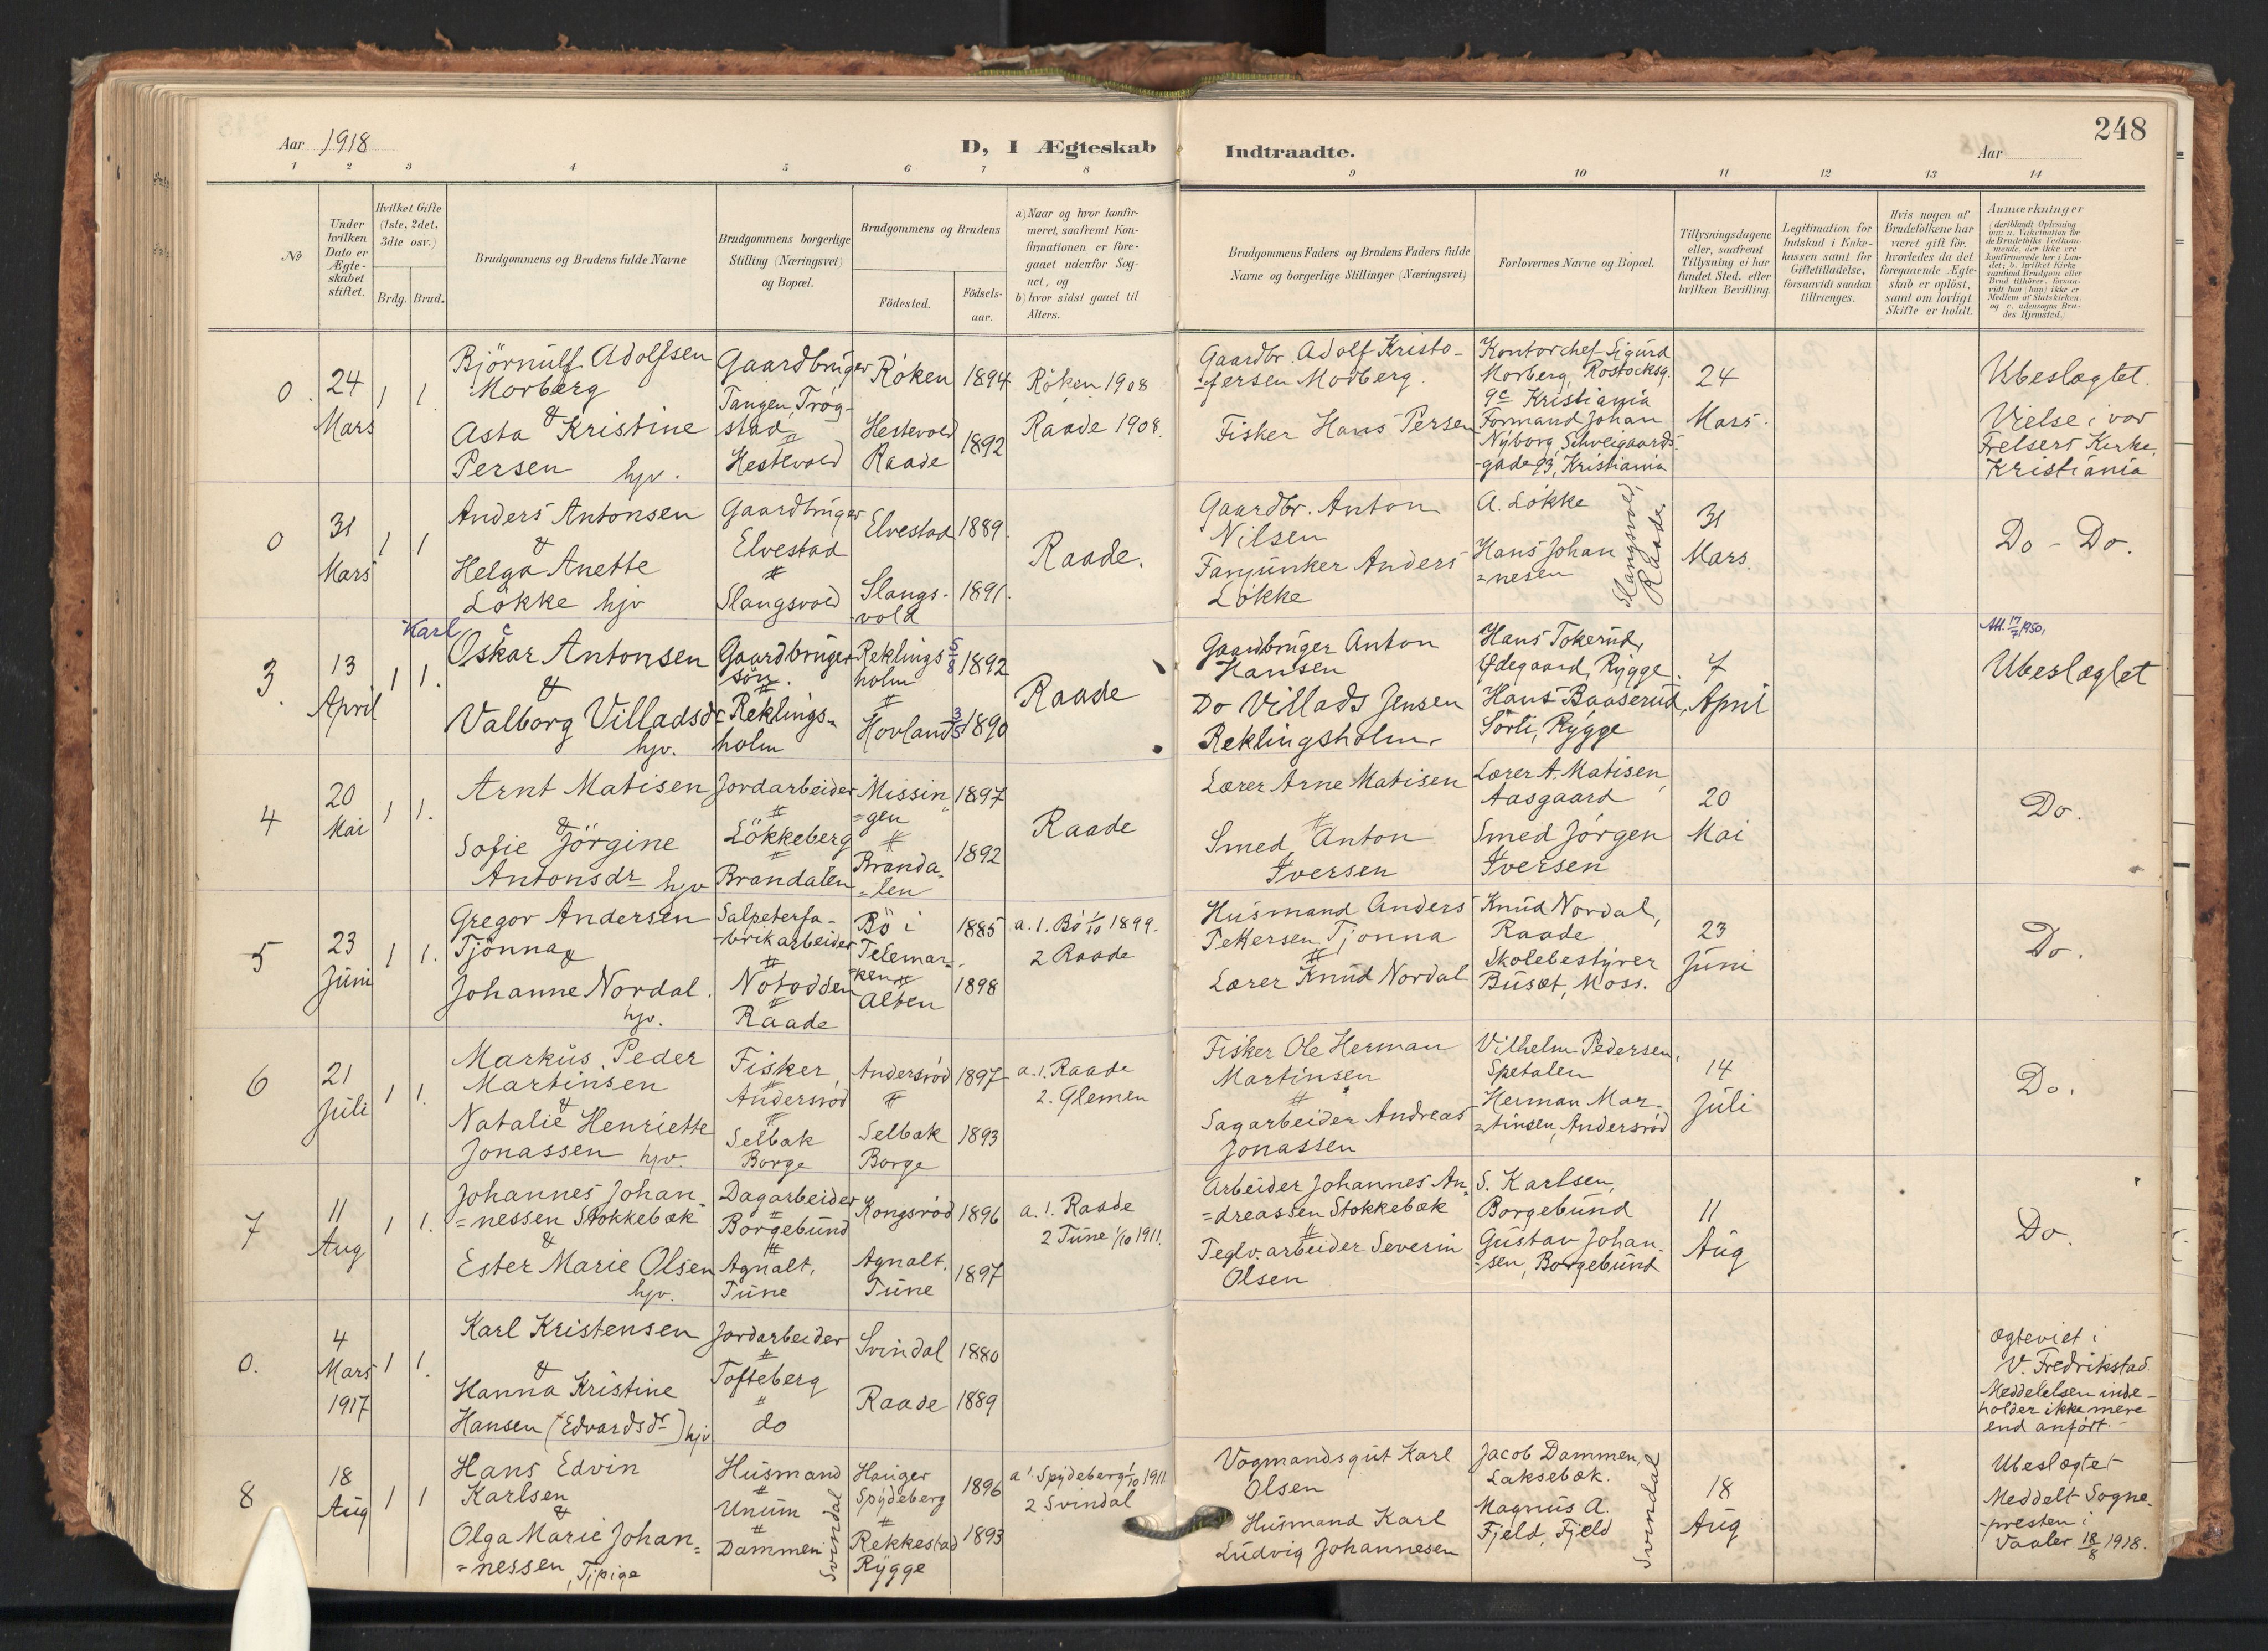 248
Aar 1918
D, I Ægteskab Indtraadte.
Aar
1 2 3 4 5 6 7 8 9 10 11 12 13 14
No
Under hvilken Dato er Ægteskabet stiftet.
Hvilket Gifte (1ste, 2det, 3die osv.)
Brdg. Brud.
Brudgommens og Brudens fulde Navne
Brudgommens borgerlige Stilling (Næringsvei) og Bopæl.
Brudgommens og Brudens
Födested.
Födsels-aar.
a) Naar og hvor konfir-
meret, saafremt Kon-
firmationen er fore-
gaaet udenfor Sog-
net, og
b) hvor sidst gaaet til
Alters.
Brudgommens Faders og Brudens Faders fulde
Navne og borgerlige Stillinger (Næringsvei)
Forlovernes Navne og Bopæl.
Tillysningsdagene
eller, saafremt
Tillysning ei har
fundet Sted, efter
hvilken Bevilling.
Legitimation for
Indskud i Enke-
kassen samt for
Giftetilladelse,
forsaavidt saadan
tiltrænges.
Hvis nogen af
Brudefolkene har
været gift för,
hvorledes da det
foregaaende Ægte-
skab er oplöst,
samt om lovligt
Skifte er holdt.
Anmærkninger
(deriblandt Oplysning
om: a. Vakcination for
de Brudefolks Vedkom-
mende, der ikke ere
konfirmerede her i Lan-
det; b. hvilket Kirke-
samfund Brudgom eller
Brud tilhörer, forsaa-
vidt han (hun) ikke er
Medlem af Statskirken,
og c. udensogns Bru-
des Hjemsted.)
0
24
Mars
1 1.
Björnulf Adolfsen
Morberg
&
Asta Kristine
Persen hjv.
Gaardbruger
Tangen, Trøg-
stad
Hestevold
Röken
Hestevold
Raade
1894
1892
Röken 1908
Raade 1908.
Gaardbr. Adolf Kristo-
-fersen Modberg.
Fisker Hans Persen
Kontorchef Sigurd
Morberg, Rostocksg.
9c Kristiania
Formand Johan
Nyborg, Schveigaards-
-gade 93, Kristiania
24
Mars.
Ubeslægtet.
Vielse i vor
Frelsers Kirke,
Kristiania
0
31
Mars
1 1
Anders Antonsen
&
Helga Anette
Lökke hjv
Gaardbruger
Elvestad
Slangsvold
Elvestad
Slangs-
vold
1889.
1891.
Raade.
Gaardbr. Anton
Nilsen
Fanjunker Anders
Lökke
A. Lökke
Hans Johan
=nesen
Slangsvold, Raade.
31
Mars.
Do - Do.
3.
13
April
1 1.
Karl
Oskar Antonsen
&
Valborg Villadsdr
hjv.
Gaardbruger
sön.
Reklings-
holm
Reklings
holm
Hovland
5/8 1892
3/5 1890
Raade
Gaardbruger Anton
Hansen
Do Villads Jensen
Reklingsholm.
Hans Tokerud,
Ødegaard, Rygge.
Hans Baaserud,
Sörli, Rygge
7
April
Att. 17/7 1950.
Ubeslægtet
4
20
Mai
1 1.
Arnt Matisen
&
Sofie Jörgine
Antonsdr hjv
Jordarbeider
Lökkeberg
Brandalen
Missin
=gen
Branda-
=len
1897
1892
Raade
Lærer Arne Matisen
Smed Anton
Iversen
Lærer A. Matisen,
Aasgaard
Smed Jörgen
Iversen
20
Mai
Do.
5
23
Juni
1 1.
Gregor Andersen
Tjönna &
Johanne Nordal.
hjv.
Salpeterfa-
-brikarbeider
Notodden
Raade
Bö i
Telemar-
ken
Alten
1885
1898
a. 1. Bö 1/10 1899.
2 Raade
Husmand Anders
Pettersen Tjonna
Lærer Knud Nordal
Knud Nordal,
Raade
Skolebestyrer
Busæt, Moss.
23
Juni
Do.
6
21
Juli
1 1.
Markus Peder
Martinsen
&
Natalie Henriette
Jonassen hjv.
Fisker,
Andersröd
Selbak
Borge
Andersröd
Selbak
Borge
1897
1893
a. 1. Raade
2. Glemen
Fisker Ole Herman
Martinsen
Sagarbeider Andreas
Jonassen
Vilhelm Pedersen,
Spetalen
Herman Mar-
=tinsen, Andersröd
14
Juli
Do.
7
11
Aug
1 1.
Johannes Johan
=nessen Stokkebæk
&
Ester Marie Olsen
hjv.
Dagarbeider
Borgebund
Agnalt,
Tune
Kongsröd
Agnalt.
Tune
1896
1897
a. 1. Raade
2 Tune 1/10 1911.
Arbeider Johannes An-
=dreassen Stokkebæk
Teglv.arbeider Severin
Olsen
S. Karlsen,
Borgebund
Gustav Johan-
sen, Borgebund
11
Aug
Do.
0.
4
Mars
1917
1 1.
Karl Kristensen
&
Hanna Kristine
Hansen (Edvardsdr) hjv
Jordarbeider
Tofteberg
do
Svindal
Raade
1880
1889
Ægteviet i
V. Fredrikstad
Meddelelsen inde-
holder ikke mere
end anfört.
8
18
Aug
1 1
Hans Edvin
Karlsen
&
Olga Marie Johan-
=nessen, Tjpige
Husmand
Unum
Dammen
Svindal
Hauger
Spydeberg
Rekkestad
Rygge
1896
1893
a 1. Spydeberg 1/10 1911
2 Svindal
Vogmandsgut Karl
Olsen
Husmand Karl
Ludvig Johannesen
Jacob Dammen,
Laksebæk.
Magnus A.
Fjeld, Fjeld
Svindal
18
Aug
Ubeslægtet
Meddelt Sogne-
-presten i
Vaaler 18/8 1918.